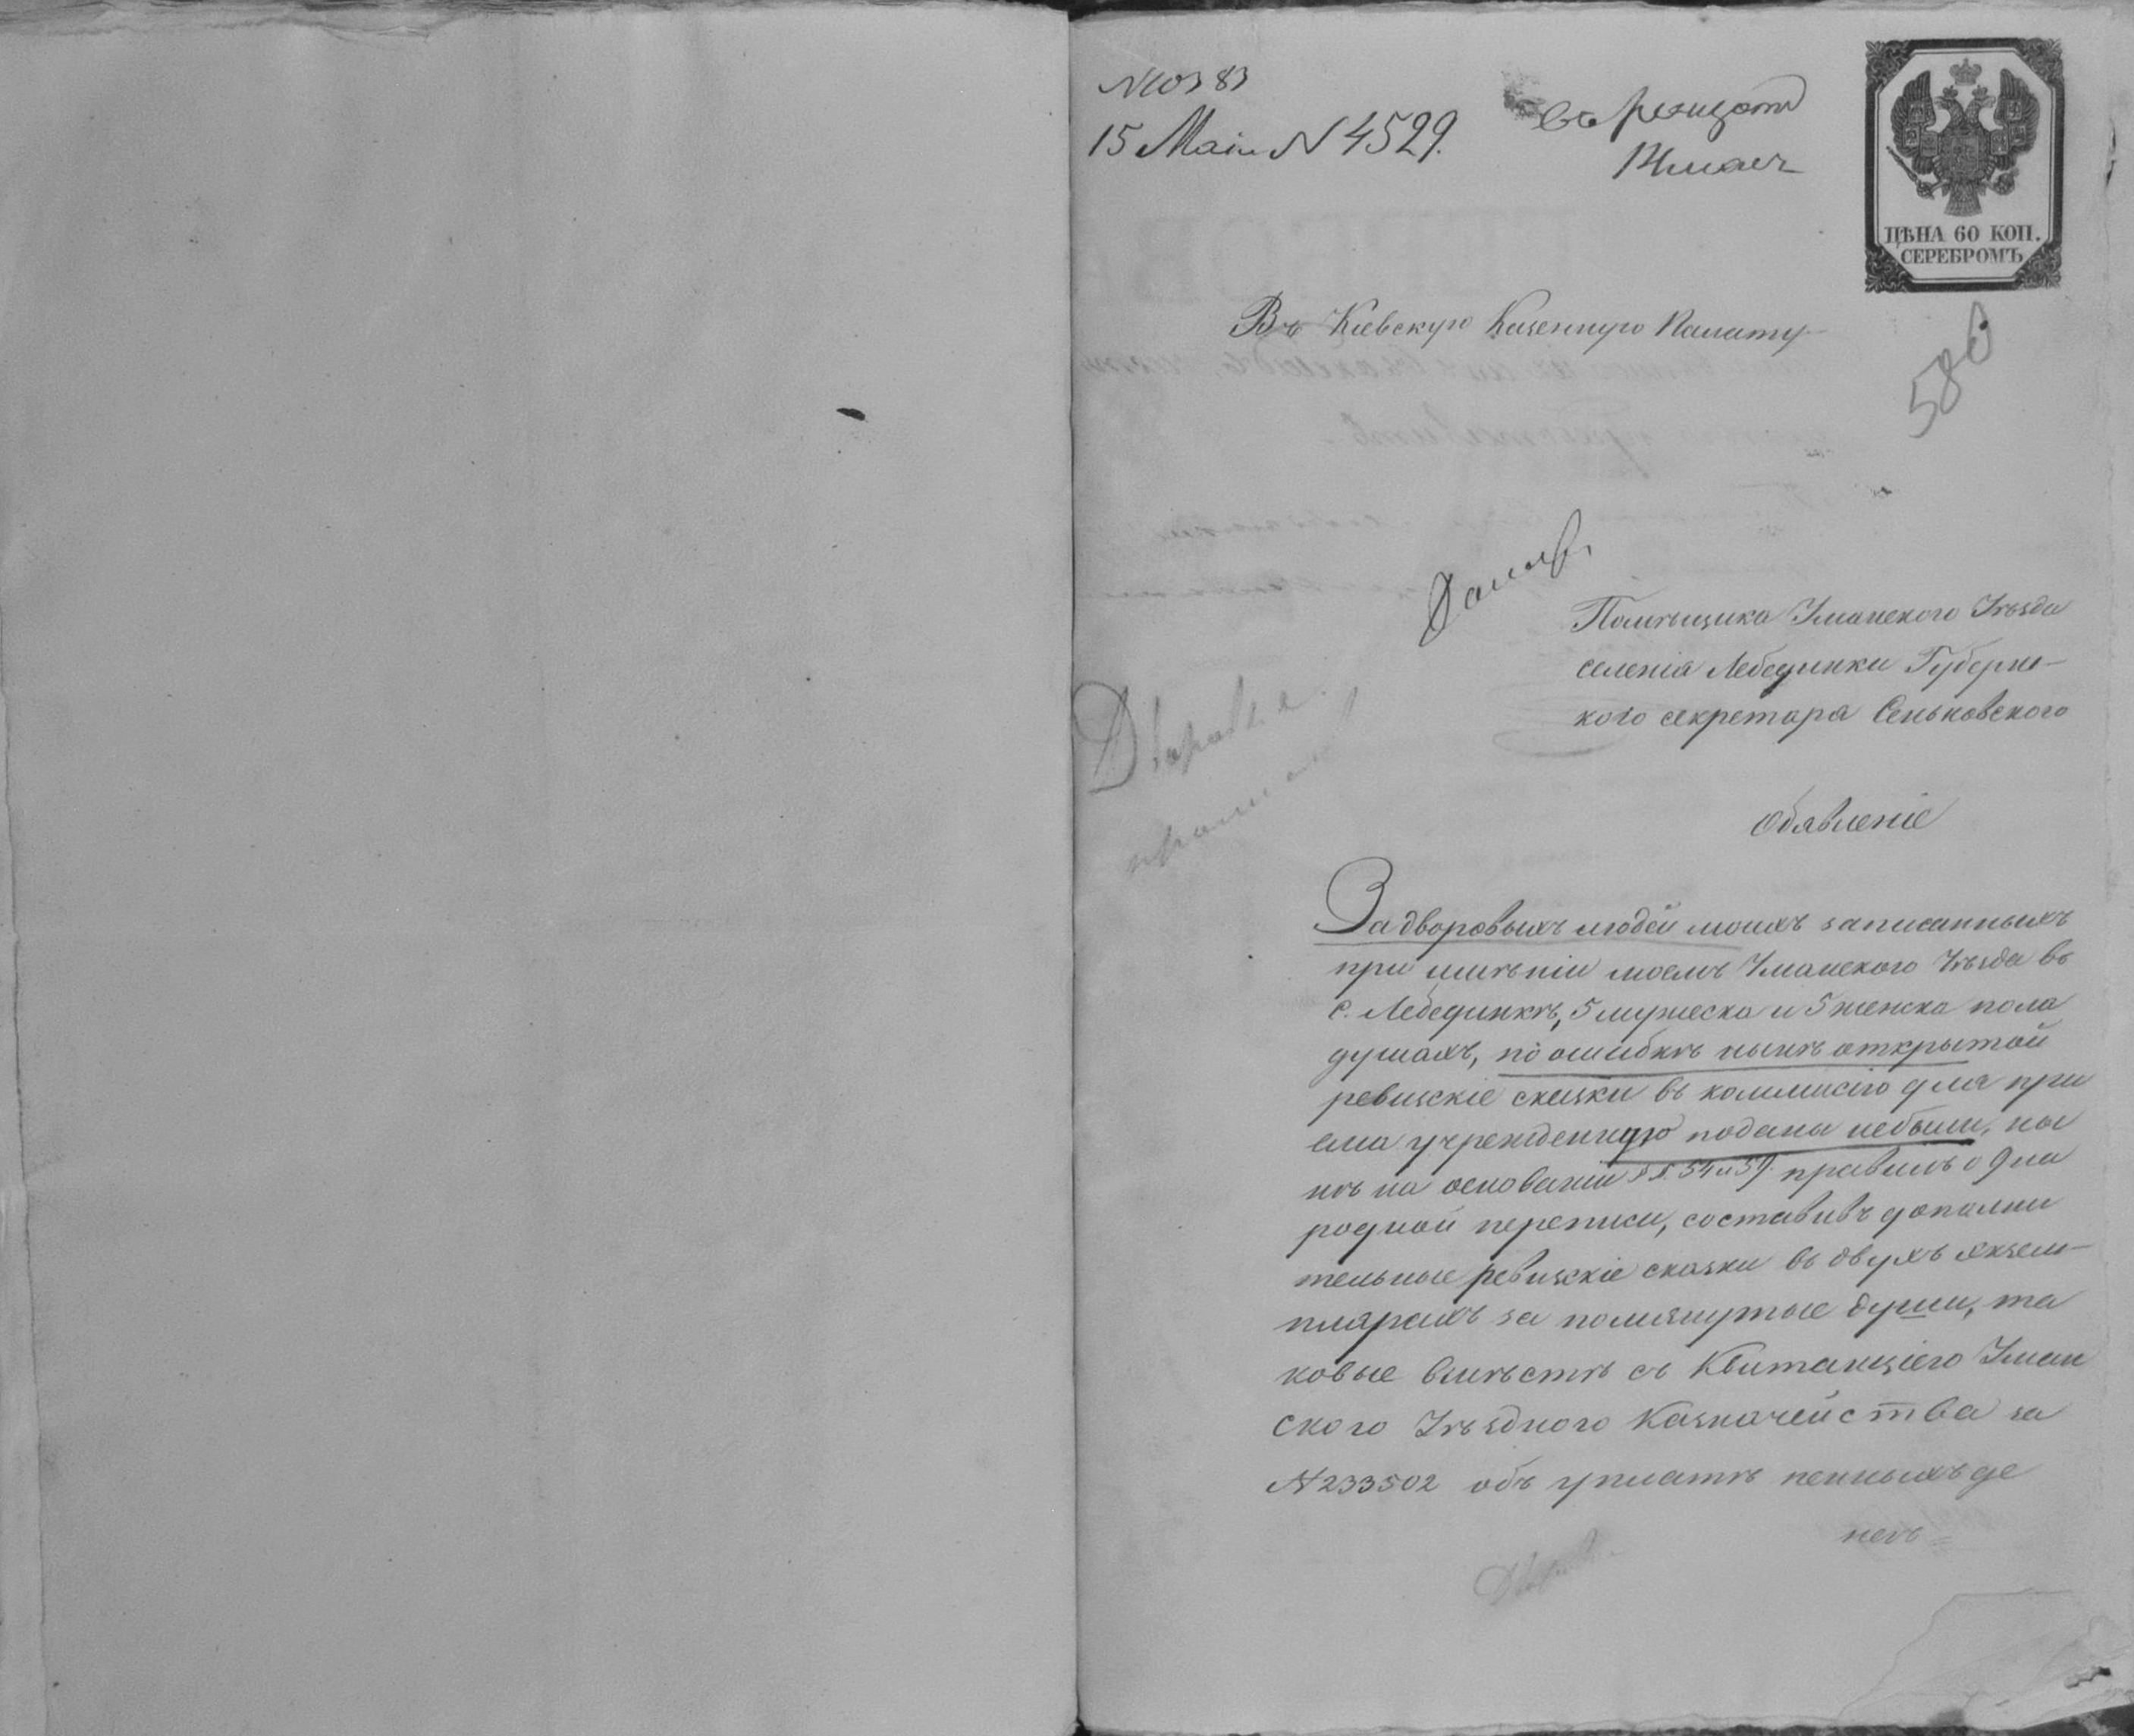 N 10383
15 Маія N 4529.
въ
ЦѢНА 60 КОП.
СЕРЕБРОМЪ
Въ Кіевскую Казенную Палату
580
Помѣщика Уманского Уѣзда
селенія Лебединки Губернс-
кого секретаря Сеньковского
Обявленіе
За дворовыхъ людей моихъ записанныхъ
при имѣніи моемъ Уманского Уѣзда въ
с. Лебединкѣ, 5 мужеска и 5 женска пола
душахъ, по ошибкѣ нынѣ открытой
ревизскіе сказки въ коммисію для при
ема учрежденную поданы небыли, ны
нѣ на основаніи §§. 54 и 59. правилъ о 9 на
родной переписи, составивъ дополни
тельные ревизскіе сказки въ двухъ екзем-
плярахъ за помянутые души, та
ковые вмѣстѣ съ Квитанціею Уман
ского Уѣздного Казначейства за
N 233502 объ уплатѣ пенныхъ де
негъ